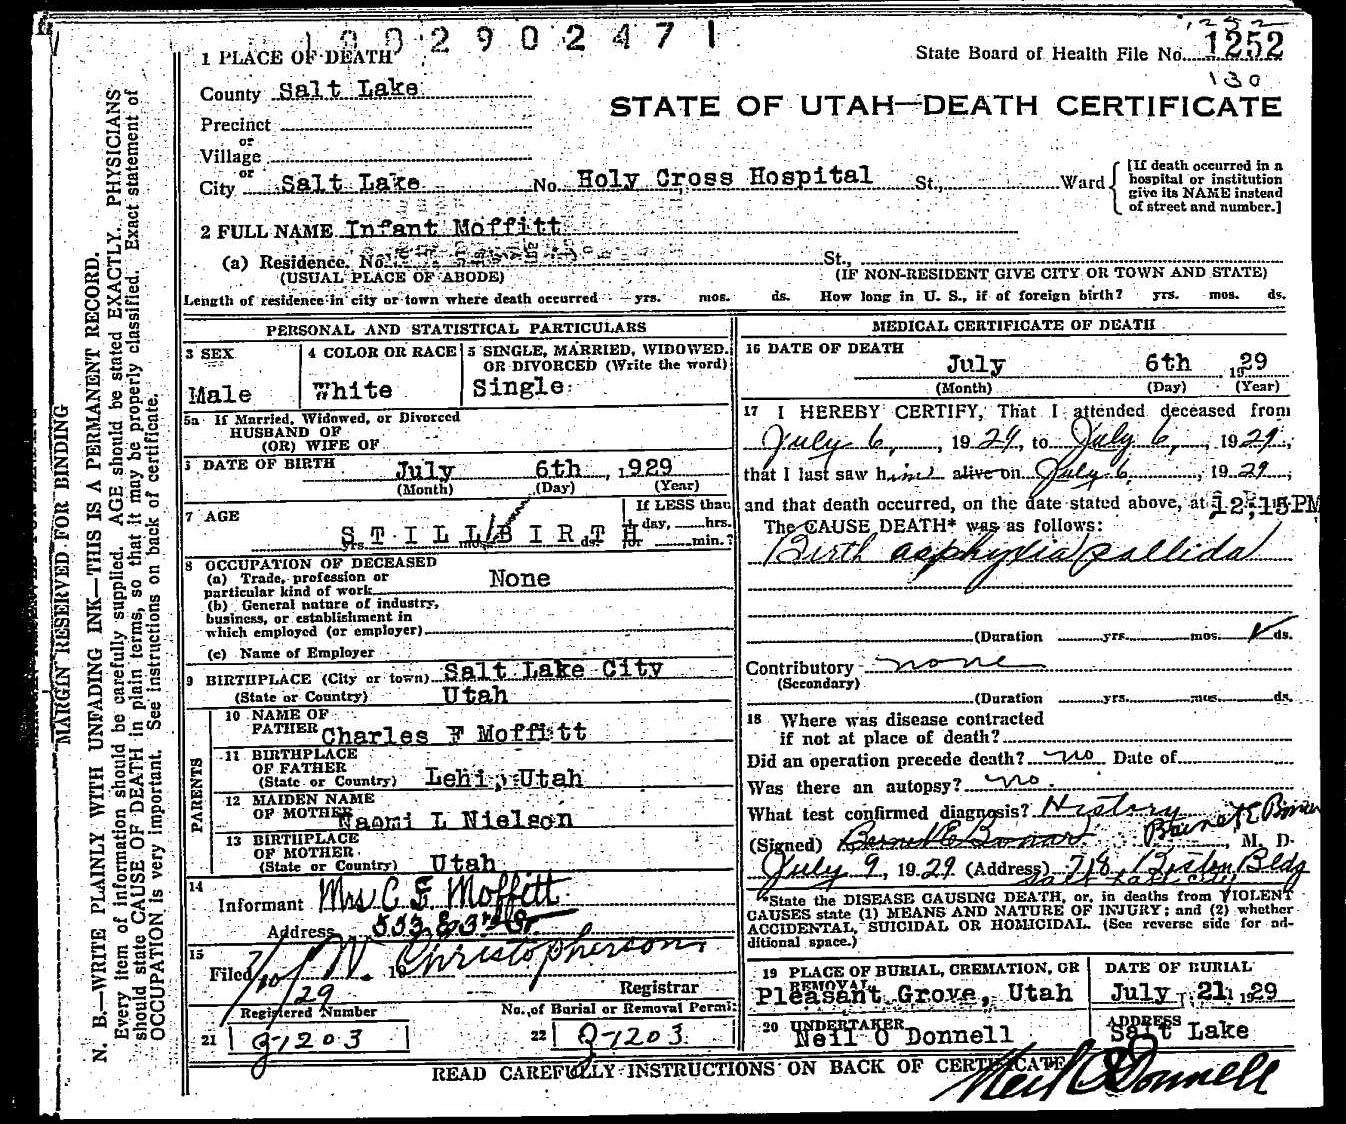 1002902471
State Board of Health File No. 1252
130
1 PLACE OF DEATH
County Salt Lake
STATE OF UTAH—DEATH CERTIFICATE
Precinct
or
Village
or
City Salt Lake No. Holy Cross Hospital St., Ward
[If death occurred in a
hospital or institution
give its NAME instead
of street and number.]
2 FULL NAME Infant Moffitt
(a) Residence. No. St.,
(USUAL PLACE OF ABODE) (IF NON-RESIDENT GIVE CITY OR TOWN AND STATE)
Length of residence in city or town where death occurred yrs. mos. ds. How long in U. S., if of foreign birth? yrs. mos. ds.
PERSONAL AND STATISTICAL PARTICULARS
3 SEX
Male
4 COLOR OR RACE
White
5 SINGLE, MARRIED, WIDOWED.
OR DIVORCED (Write the word)
Single
5a If Married, Widowed, or Divorced
HUSBAND OF
(OR) WIFE OF
DATE OF BIRTH July 6th, 1929
(Month) (Day) (Year)
7 AGE
If LESS than
1 day, hrs.
STILLBIRTH
yrs. mos. ds. or min.?
8 OCCUPATION OF DECEASED
(a) Trade, profession or
particular kind of work None
(b) General nature of industry,
business, or establishment in
which employed (or employer)
(c) Name of Employer
9 BIRTHPLACE (City or town) Salt Lake City
(State or Country) Utah
PARENTS
10 NAME OF
FATHER Charles F Moffitt
11 BIRTHPLACE
OF FATHER
(State or Country) Lehi, Utah
12 MAIDEN NAME
OF MOTHER Naomi L Nielson
13 BIRTHPLACE
OF MOTHER
(State or Country) Utah
14
Informant Mrs C F Moffitt
Address 553 E 3rd St
15
Filed 7/10/29 19 W. Christopherson
Registrar
Registered Number
21 J-1203
No. of Burial or Removal Permit
22 J-1203
MEDICAL CERTIFICATE OF DEATH
16 DATE OF DEATH
July 6th, 1929
(Month) (Day) (Year)
17 I HEREBY CERTIFY, That I attended deceased from
July 6, 1929, to July 6, 1929,
that I last saw him alive on July 6, 1929,
and that death occurred, on the date stated above, at 12:15PM
The CAUSE DEATH* was as follows:
Birth asphyxia pallida
(Duration yrs. mos. ds.
Contributory none
(Secondary)
(Duration yrs. mos. ds.
18 Where was disease contracted
if not at place of death?
Did an operation precede death? no Date of
Was there an autopsy? no.
What test confirmed diagnosis? History
(Signed) Barnet E Bonar Barnet E Bonar, M. D.
July 9, 1929 (Address) 718 Boston Bldg
Salt Lake City
*State the DISEASE CAUSING DEATH, or, in deaths from VIOLENT
CAUSES state (1) MEANS AND NATURE OF INJURY; and (2) whether
ACCIDENTAL, SUICIDAL OR HOMICIDAL. (See reverse side for ad-
ditional space.)
19 PLACE OF BURIAL, CREMATION, OR
REMOVAL
Pleasant Grove, Utah
DATE OF BURIAL
July 21 1929
20 UNDERTAKER
Neil O Donnell
ADDRESS
Salt Lake
READ CAREFULLY INSTRUCTIONS ON BACK OF CERTIFICATE
Neil O'Donnell
MARGIN RESERVED FOR BINDING
N. B.—WRITE PLAINLY WITH UNFADING INK—THIS IS A PERMANENT RECORD.
Every item of information should be carefully supplied. AGE should be stated EXACTLY. PHYSICIANS
should state CAUSE OF DEATH in plain terms, so that it may be properly classified. Exact statement of
OCCUPATION is very important. See instructions on back of certificate.